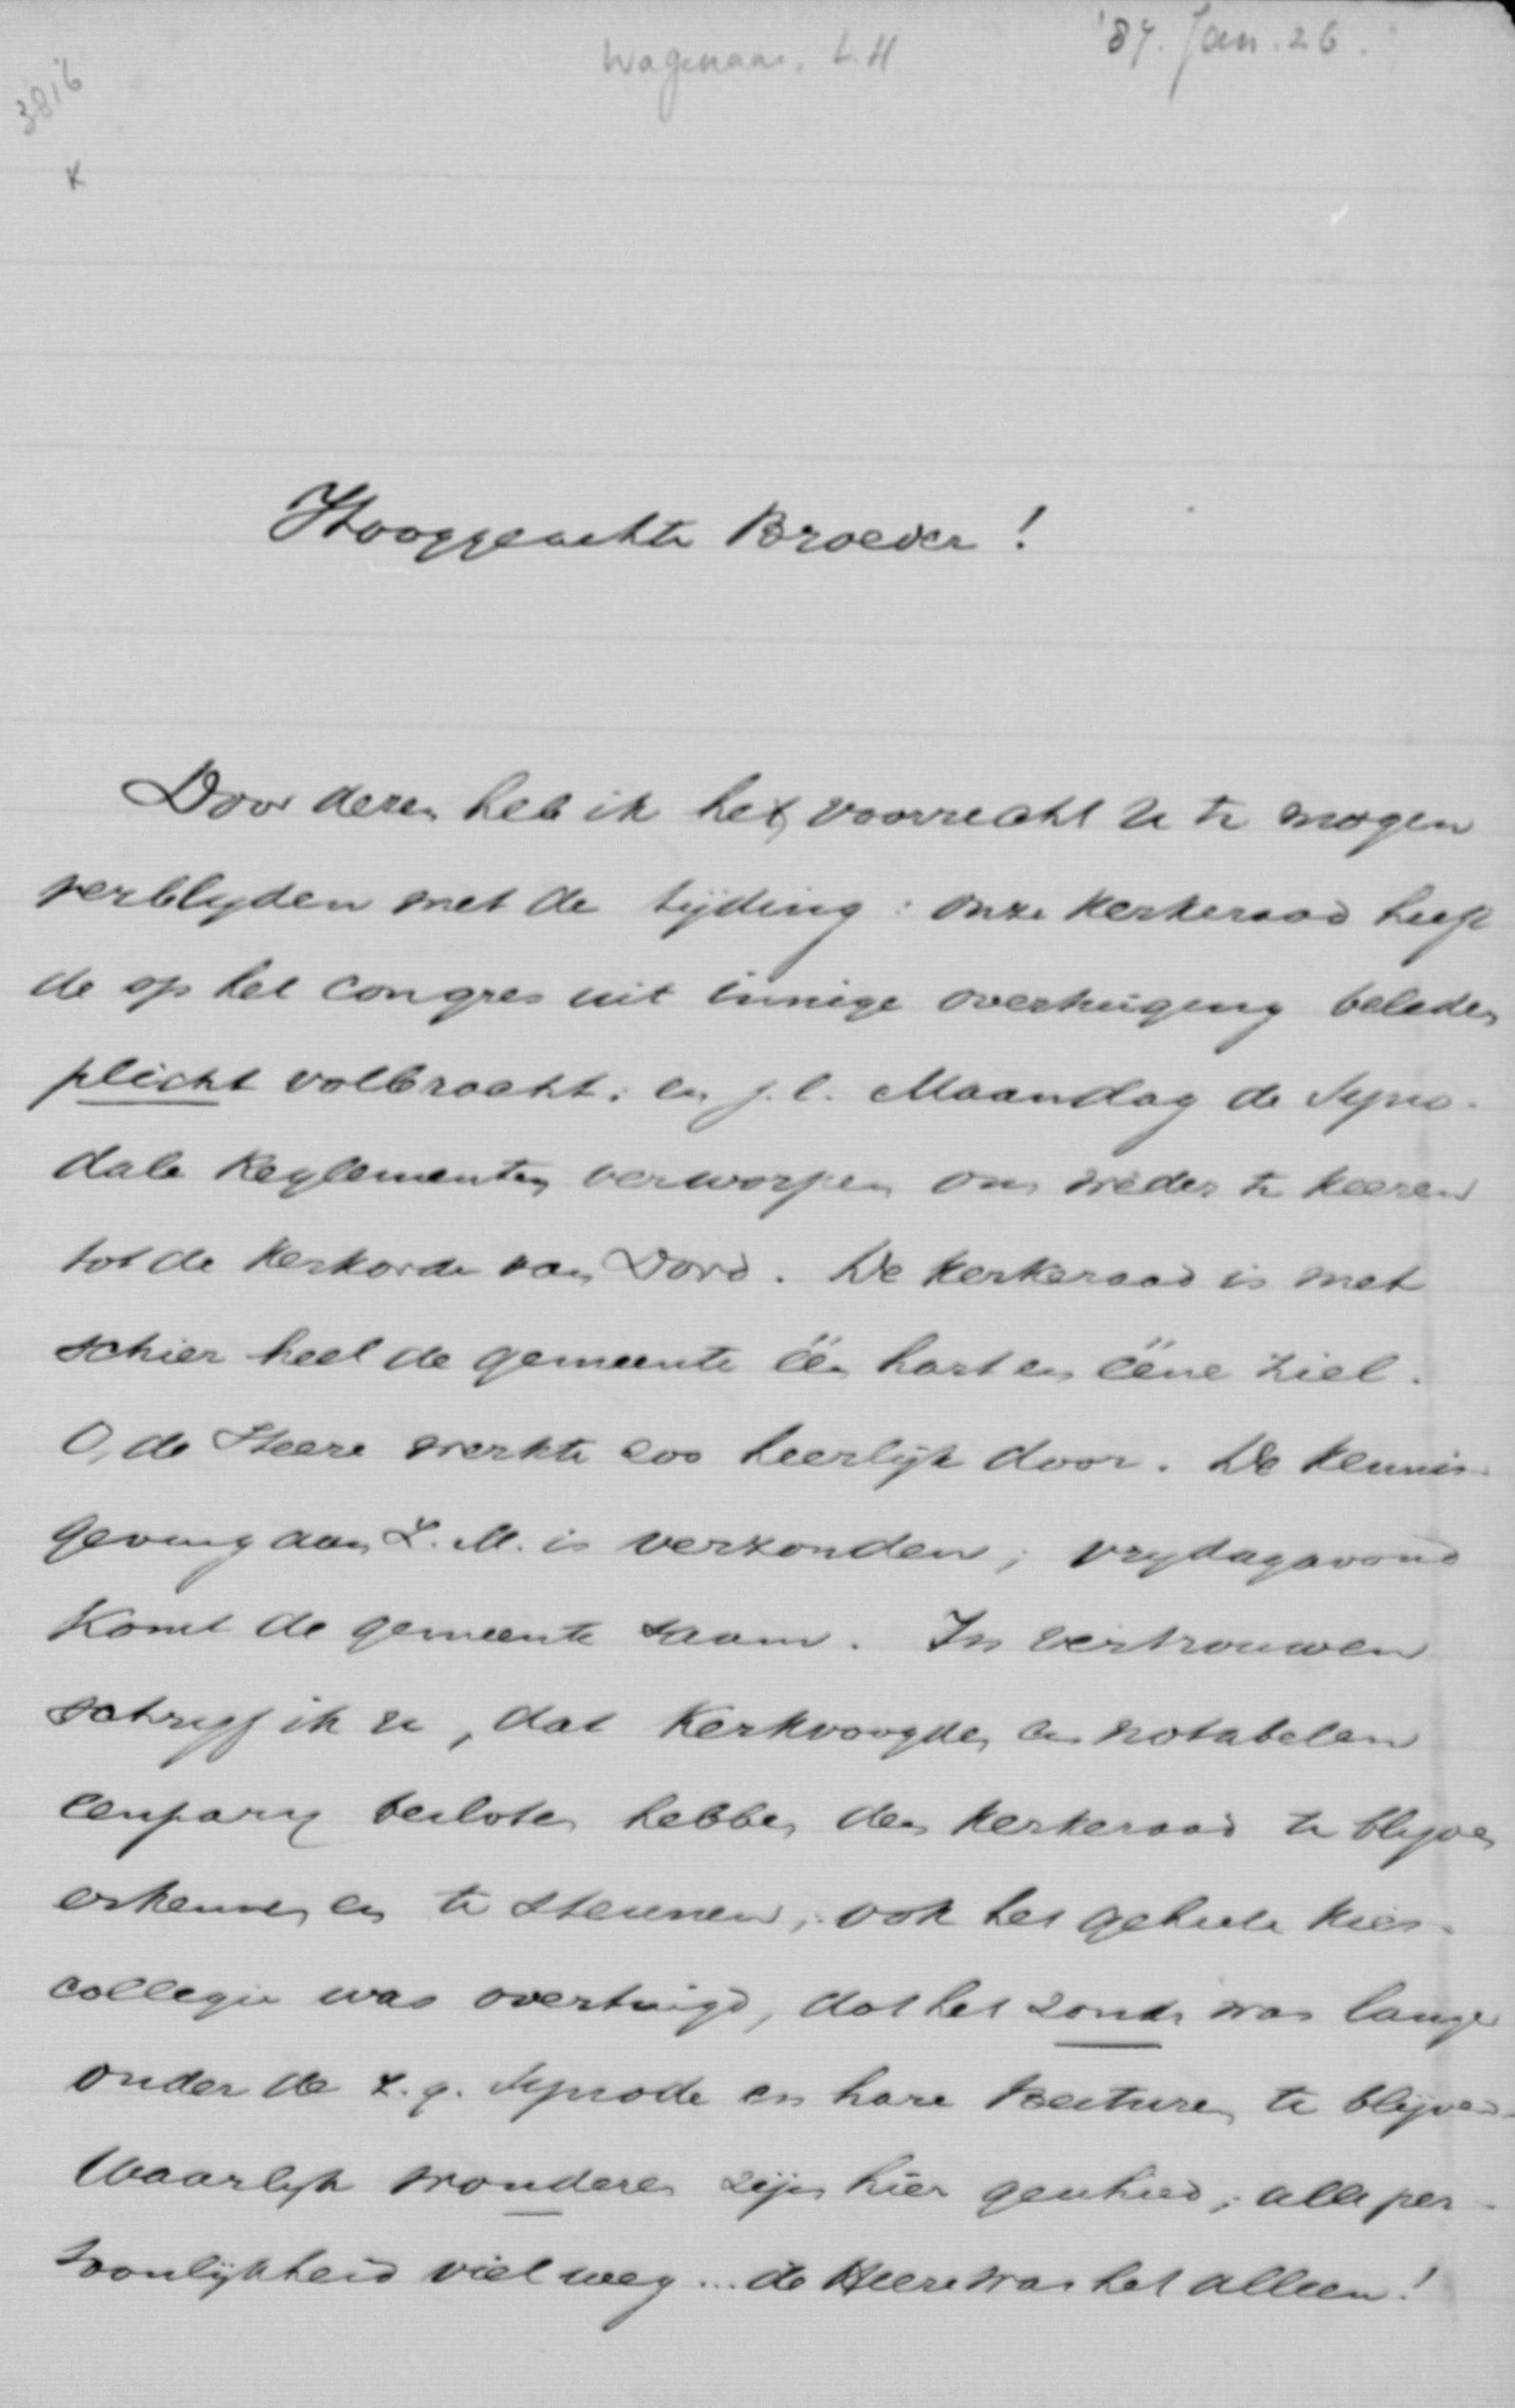 Wagenaar, L.H
'87. Jan. 26.
3816
K
Hooggeachte Broeder!
Door dezen heb ik het voorrecht U te mogen
verblyden met de tijding: onze kerkeraad heeft
de op het congres uit innige overtuiging beleden
plicht volbracht; en j.l. Maandag de Syno-
dale Reglementen verworpen om weder te keeren
tot de kerkorde van Dord. De kerkeraad is met
schier heel de gemeente één hart en ééne ziel.
O, de Heere werkte zoo heerlijk door. De kennis-
geving aan Z.M. is verzonden; vrydagavond
komt de gemeente saam. In vertrouwen
schryf ik U, dat Kerkvoogden en notabelen
eenparig besloten hebben den kerkeraad te blyven
erkennen en te steunen; ook het geheele kies-
collegie was overtuigd, dat het zonde was langer
onder de z.g. Synode en hare Besturen te blijven.
Waarlyk wonderen zijn hier geschied; alle per-
soonlijkheid viel weg... de Heere was het alleen!